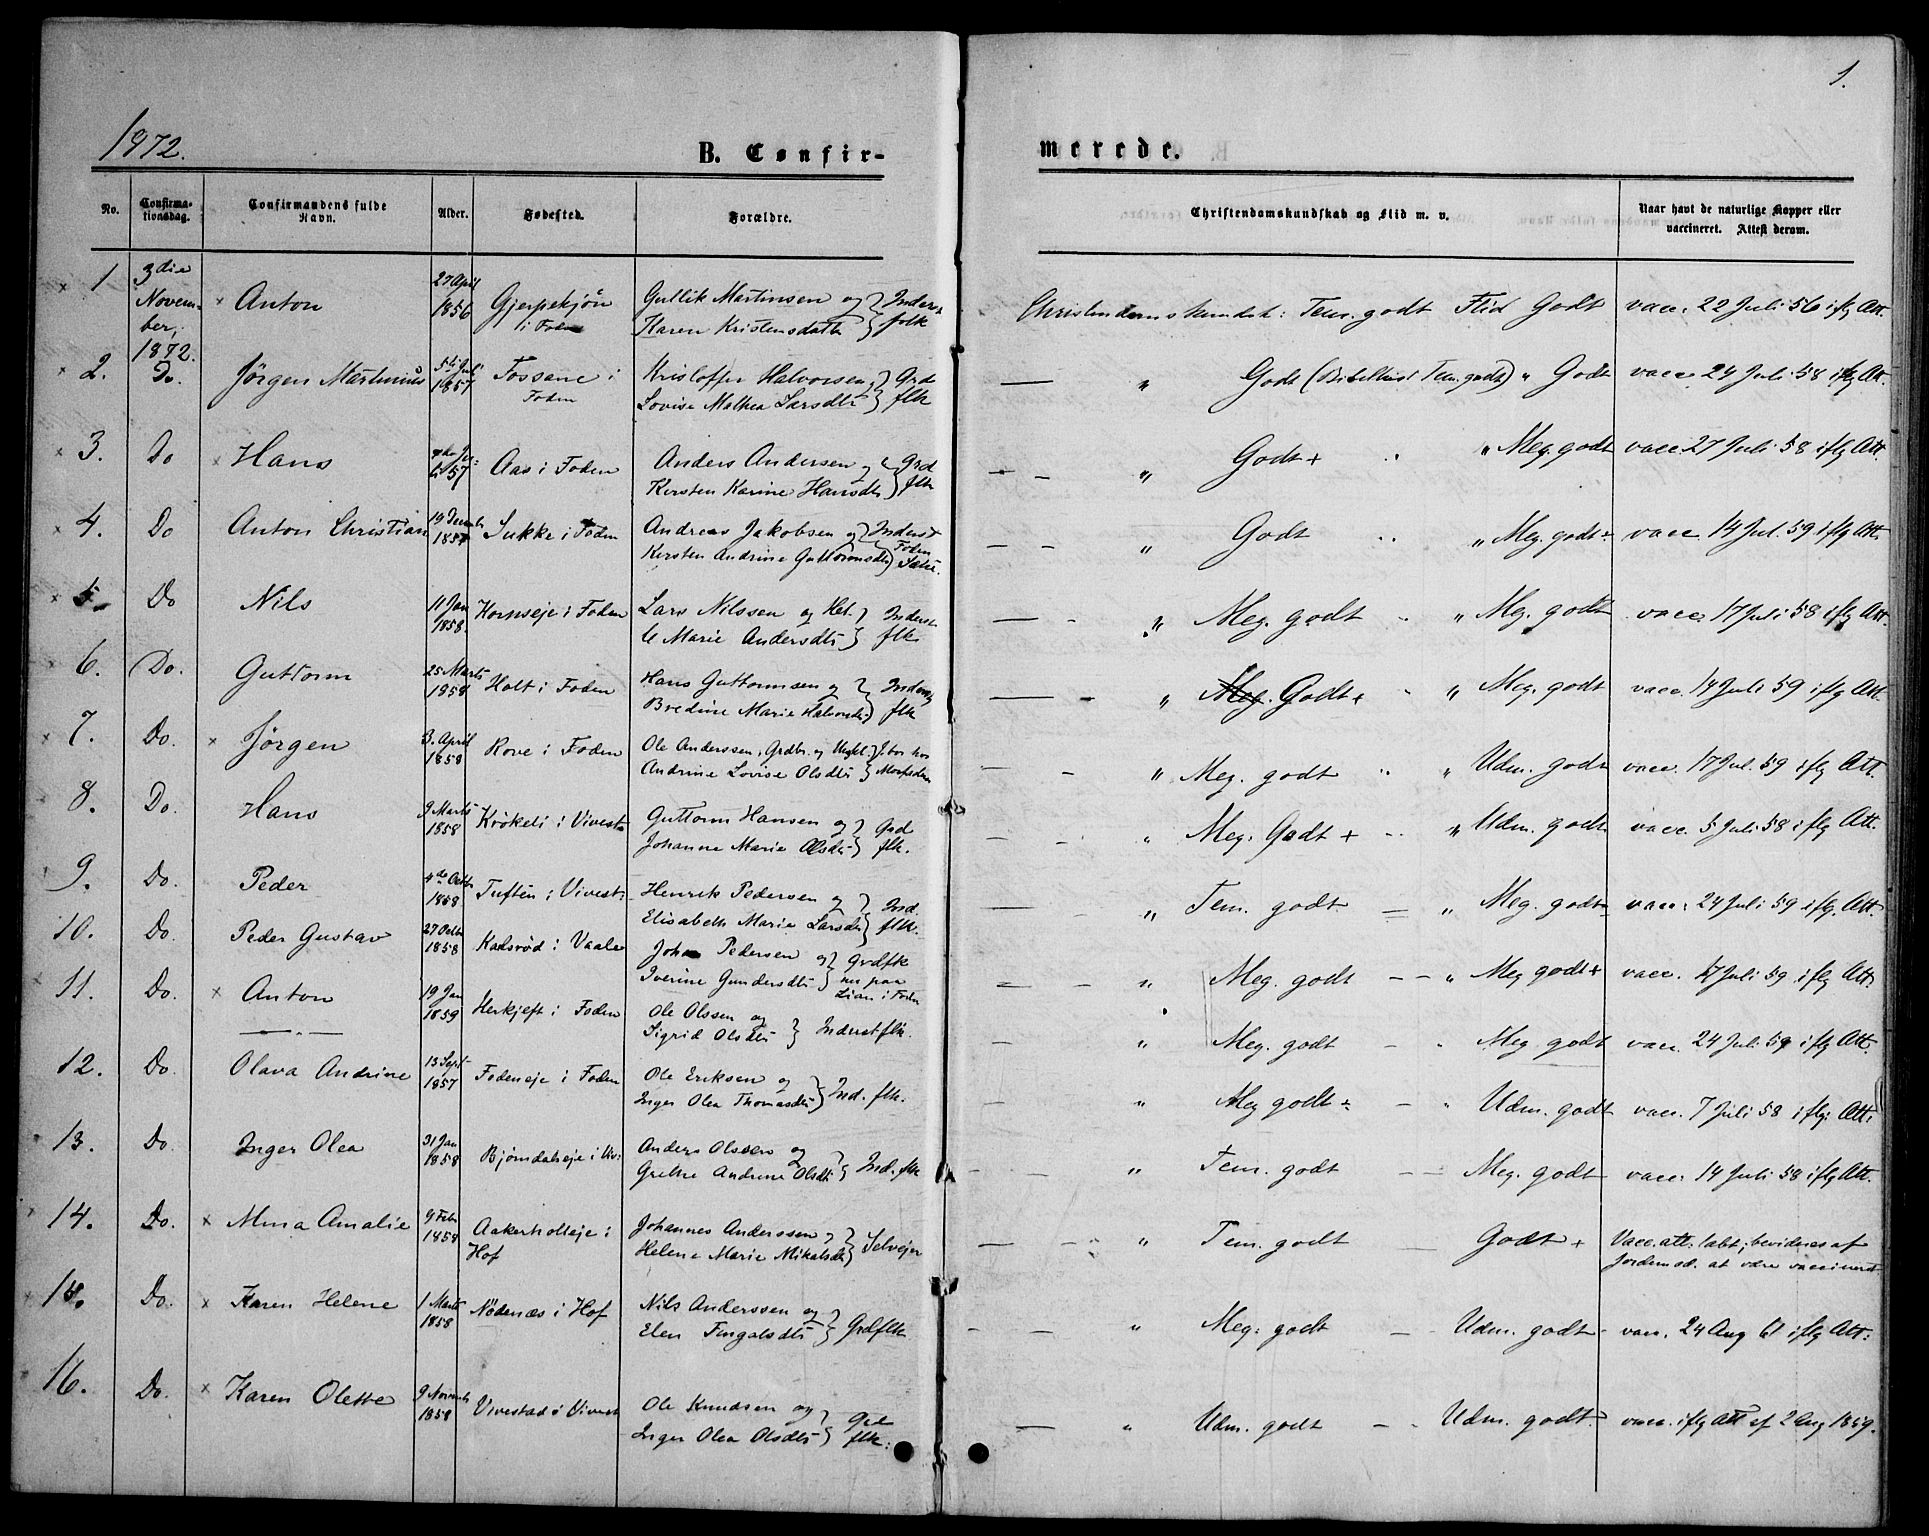 1.
1872.
B. Confir-
merede.
No.
Confirma-
tionsdag.
Confirmandens fulde
Navn.
Alder.
Fødested.
Forældre.
Christendomskundskab og Flid m. v.
Naar havt de naturlige Kopper eller
vaccineret. Attest derom.
1 3die Novem-ber, 1872. Anton 27 April 1856 Gjerpekjøn i Foden Gullik Martinsen og Karen Kristensdatt Inderst folk Christendomskundsk: Tem. godt Flid Godt vacc. 22 Juli 56 iflg Att.
2. Do. Jörgen Martinius 1857 Fossane i Foden Kristoffer Halvorsen, Lovise Mathea Larsdtr Grd flk " Godt (Tem. godt) " Godt vacc 24 Juli 58 iflg Att.
3. Do Hans 57 Aas i Foden Anders Andersen og Kersten Karine Hansdtr Grd flk " Godt+ " Meg. godt vacc. 27 Juli 58 iflg Att.
4. Do Anton Christian 19 Decemb Sukke i Foden Andreas Jakobsen og Kersten Andrine Guttormsdtr Inderst Foden " Godt " Meg. godt vacc 14 Jul. 59 iflg Att.
5. Do Nils 11 Jan 1858. Kornseje i Foden Lars Nilssen og Marie Andersdtr Inderst flk " Meg. godt " Meg. godt vacc. 17 Juli 58 iflg Att.
6. Do. Guttorm 25 Marts 1858 Holt i Foden Hans Guttormsen og Bredine Marie Halvorsdtr flk " Meg. Godt+ " Meg. godt vacc. 14 Juli 59 iflg Att.
7. Do. Jörgen 3. April 1858 Rove i Foden Ole Anderssen, Grdbr. og Andrine Lovise Olsdtr bor hos " Meg. godt " Udm. godt vacc. 17 Jul. 59 iflg Att.
8. Do. Hans 9 Marts 1858 Krökeli i Vivest. Guttorm Hansen og Johanne Marie Olsdtr Grd flk. " Meg. Godt + " Udm. godt vacc. 5 Juli 58 iflg Att.
9. Do. Peder 4de Octbr 1858 Tuften i Vivest. Henrik Pedersen og Elisabeth Marie Larsdtr Ind. flk. " Tem. godt " Meg. godt vacc. 24 Juli 59 iflg. Att.
10. Do. Peder Gustav 27 Octbr 1858 Kadsröd i Vaale Johan Pedersen og Iverine Gundersdtr Grdflk nu paa Lian i Foden " Meg. godt " Meg godt+ vacc. 17 Juli 59 iflg Att.
11. Do. Anton 19 Jan 1859 Herkjeft i Foden Ole Olssen og Sigrid Olsdtr Inderstflk. " Meg. godt " Meg godt vacc. 24 Juli 59 iflg Att.
12. Do. Olava Andrine 13 Sept 1857 Fodeneje i Foden Ole Eriksen og Inger Olea Thomasdtr Ind. flk. " Meg godt " Udm. godt vacc. 7 Juli 58 iflg. Att.
13. Do. Inger Olea 31 Jan 1858 Bjørndalseje i Viv. Anders Olssen og Grethe Andrine Olsdtr Ind. flk " Tem. godt Meg. godt vacc. 14 Juli 58 iflg Att.
14. Do. Mina Amalie 9 Febr 1858 Aakerholteje i Hof Johannes Anderssen og Helene Marie Mikalsdtr Selvejer " Tem. godt Godt + Vacc. att. tabt; bevidnes af Jordemod. at være vaccineret
15. Do. Karen Helene 1 Marts 1858 Nödenæs i Hof Nils Anderssen og Elen Fingalsdtr Grdflk " Meg. godt Udm. godt vacc. 24 Aug 61 iflg Att.
16. Do. Karen Olette 9 Novemb 1858 Vivestad i Vivest Ole Knudsen og Inger Olea Olsdtr Grd flk. " Udm. godt Udm. godt. vacc. iflg Att af 2 Aug 1859.